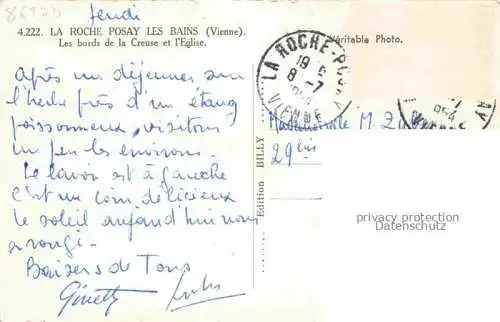 86520
Jeudi
4.222. LA ROCHE POSAY LES BAINS (Vienne).
Les bords de la Creuse et l'Eglise.
Véritable Photo.
LA ROCHE-POSAY
19
8-7
VIENNE
Après un déjeuner sur
l'herbe près d'un étang
poissonneux, visitons
un peu les environs.
Le lavoir est à gauche
c'est un coin délicieux
le soleil aujourd'hui nous
a rougi.
Baisers de Tous
Ginette
Edition BILLY
Mademoiselle M.
29 bis
954
privacy protection
Datenschutz